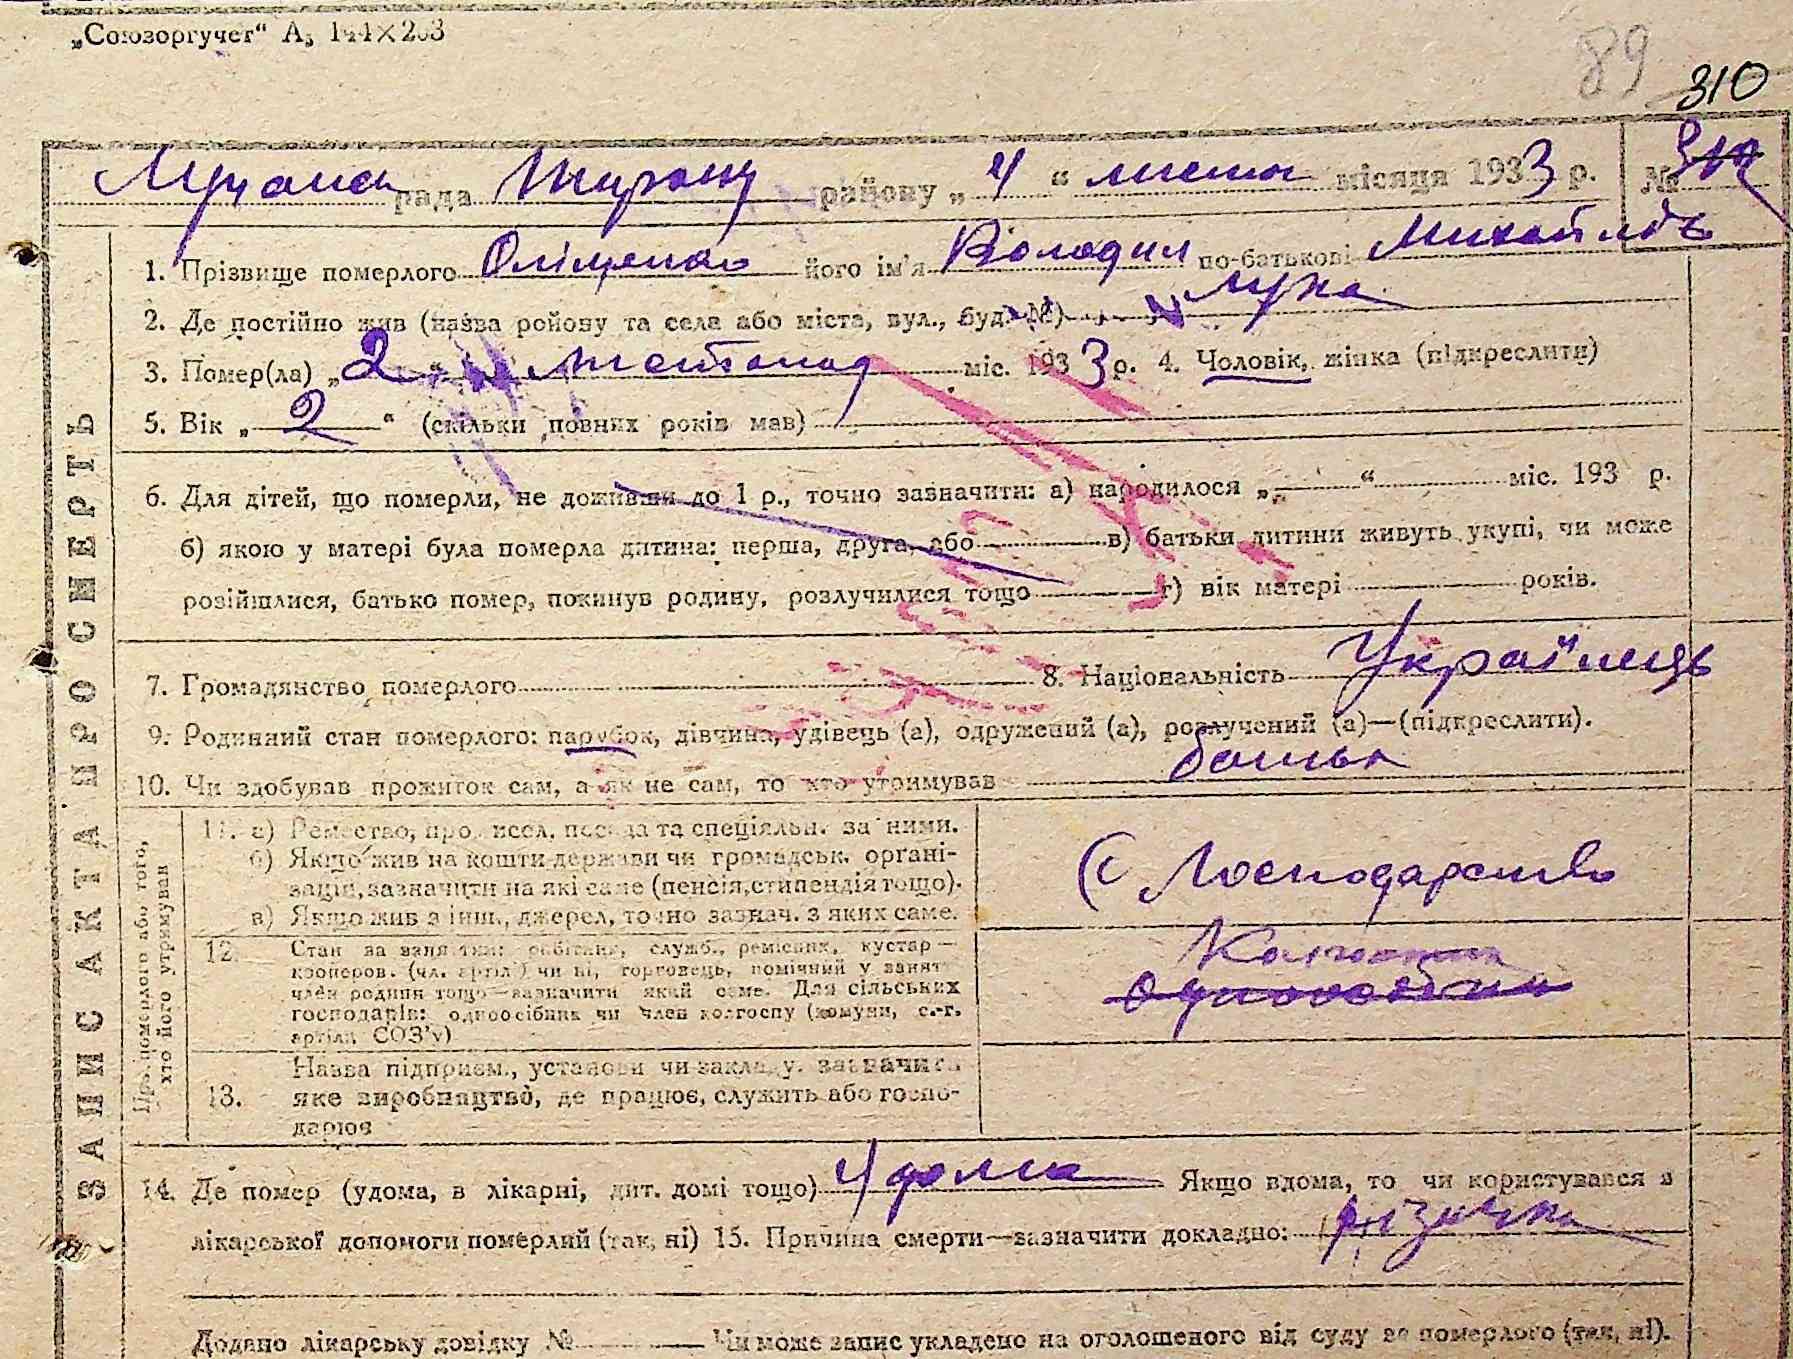 „Союзоргучет“ А5 144×203
89 310
рада района „4“ листоп місяця 1933 р. №
1. Прізвище померлого Оліщенко його ім'я Володим по-батькові Михайлов
2. Де постійно жив (назва ройову та села або міста, вул., буд. №) Лука
3. Помер(ла) „2“ листопад міс. 1933 р. 4. Чоловік, жінка (підкреслити)
5. Вік „2“ (скільки повних років мав)
6. Для дітей, що померли, не доживши до 1 р., точно зазначити: а) народилося „ “ міс. 193 р.
б) якою у матері була померла дитина: перша, друга, або в) батьки дитини живуть укупі, чи може
розійшлися, батько помер, покинув родину, розлучилися тощо г) вік матері років.
7. Громадянство померлого 8. Національність Українець
9. Родинний стан померлого: парубок, дівчина, удівець (а), одружений (а), розлучений (а)—(підкреслити).
10. Чи здобував прожиток сам, а як не сам, то хто утримував батьки
ЗАПИС АКТА ПРО СМЕРТЬ
Про померлого або того, хто його утримував
11. а) Ремество, посада та спеціяльн. за ними.
б) Якщо жив на кошти держави чи громадськ. органі-
зацій, зазначити на які саме (пенсія, стипендія тощо).
в) Якщо жив з інш., джерел, точно зазнач. з яких саме.
С Господарство
12. Стан за заняттям: робітник, служб., ремісник, кустар—
кооперов. (чл. артіл) чи ні, торговець, помічний у занят
член родини тощо—зазначити який саме. Для сільських
господарів: одноосібник чи член колгоспу (комуни, с.-г.
артіли СОЗ'у)
Колгоспник
одноосібник
13. Назва підприєм., установи чи закладу. зазначить
яке виробництво, де працює, служить або госпо-
дарює
14. Де помер (удома, в лікарні, дит. домі тощо) Удома Якщо вдома, то чи користувався з
лікарської допомоги померлий (так, ні) 15. Причина смерти—зазначити докладно:
Додано лікарську довідку № Чи може запис укладено на оголошеного від суду за померлого (так, ні).